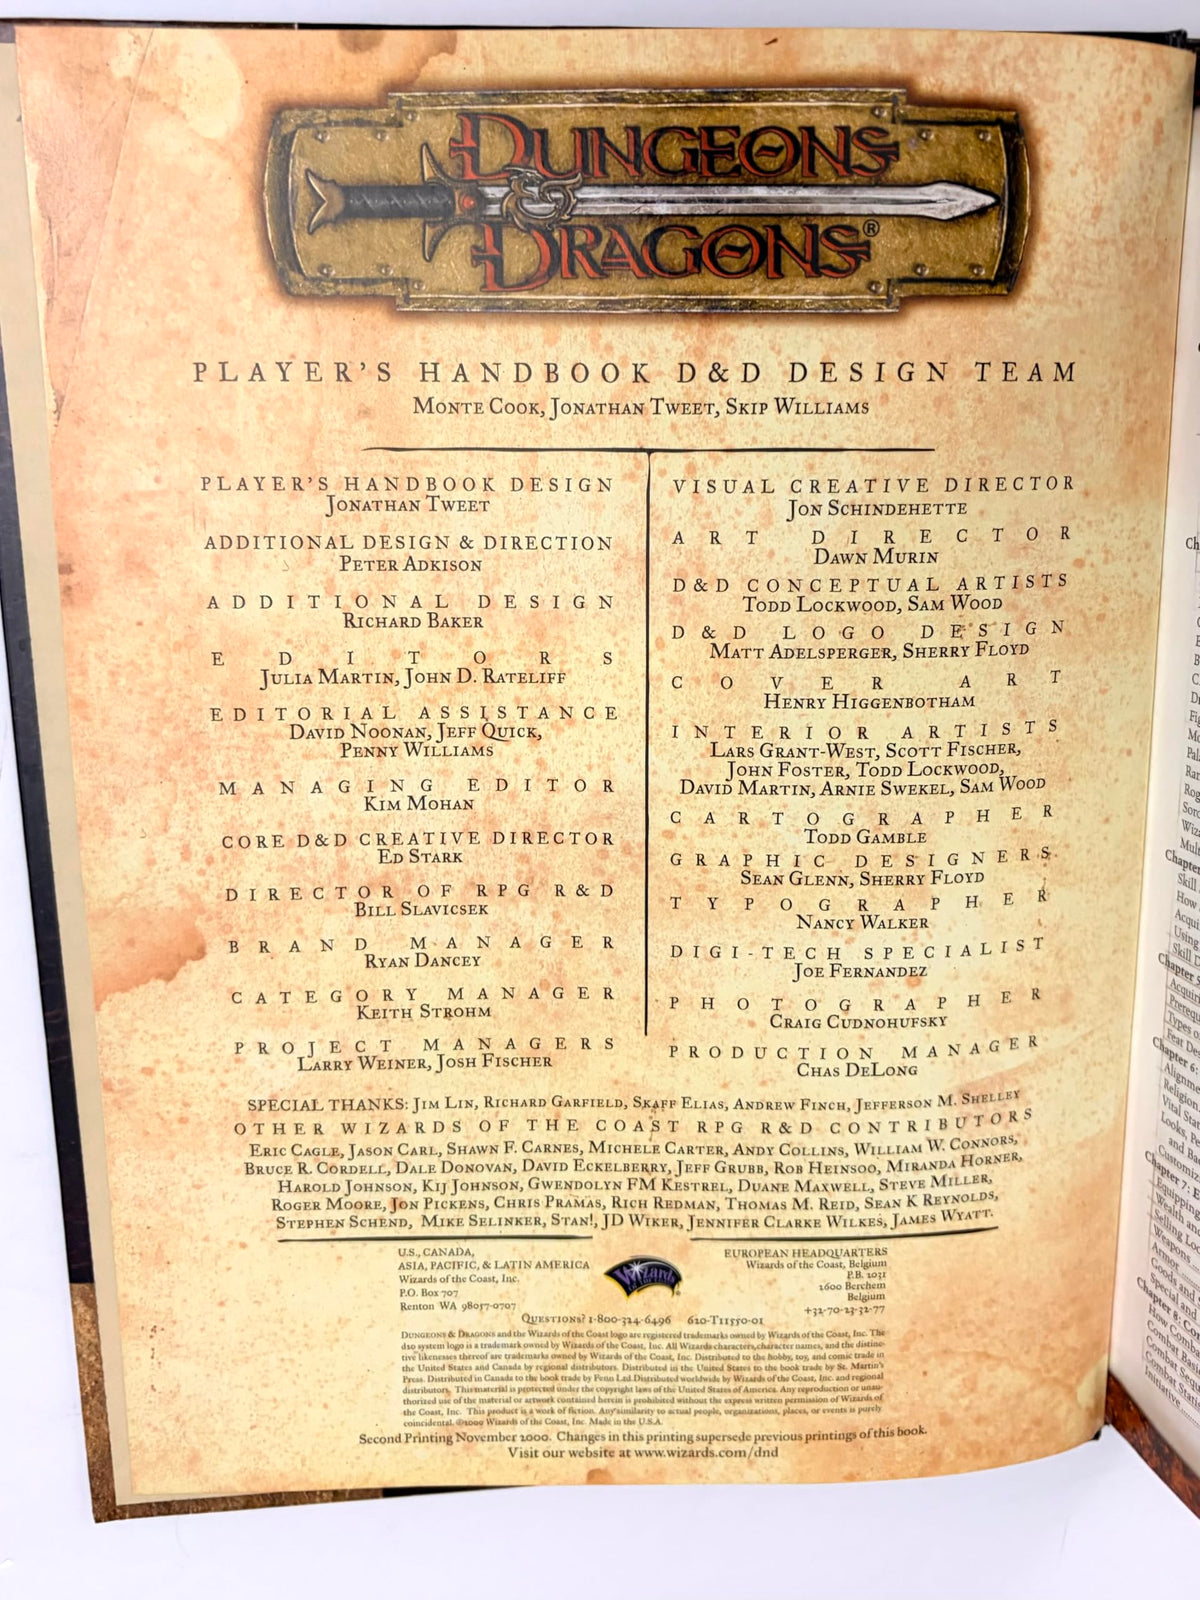 DUNGEONS
&
DRAGONS®
PLAYER'S HANDBOOK D&D DESIGN TEAM
MONTE COOK, JONATHAN TWEET, SKIP WILLIAMS
PLAYER'S HANDBOOK DESIGN
JONATHAN TWEET
ADDITIONAL DESIGN & DIRECTION
PETER ADKISON
ADDITIONAL DESIGN
RICHARD BAKER
EDITORS
JULIA MARTIN, JOHN D. RATELIFF
EDITORIAL ASSISTANCE
DAVID NOONAN, JEFF QUICK,
PENNY WILLIAMS
MANAGING EDITOR
KIM MOHAN
CORE D&D CREATIVE DIRECTOR
ED STARK
DIRECTOR OF RPG R&D
BILL SLAVICSEK
BRAND MANAGER
RYAN DANCEY
CATEGORY MANAGER
KEITH STROHM
PROJECT MANAGERS
LARRY WEINER, JOSH FISCHER
VISUAL CREATIVE DIRECTOR
JON SCHINDEHETTE
ART DIRECTOR
DAWN MURIN
D&D CONCEPTUAL ARTISTS
TODD LOCKWOOD, SAM WOOD
D&D LOGO DESIGN
MATT ADELSPERGER, SHERRY FLOYD
COVER ART
HENRY HIGGENBOTHAM
INTERIOR ARTISTS
LARS GRANT-WEST, SCOTT FISCHER,
JOHN FOSTER, TODD LOCKWOOD,
DAVID MARTIN, ARNIE SWEKEL, SAM WOOD
CARTOGRAPHER
TODD GAMBLE
GRAPHIC DESIGNERS
SEAN GLENN, SHERRY FLOYD
TYPOGRAPHER
NANCY WALKER
DIGI-TECH SPECIALIST
JOE FERNANDEZ
PHOTOGRAPHER
CRAIG CUDNOHUFSKY
PRODUCTION MANAGER
CHAS DELONG
SPECIAL THANKS: JIM LIN, RICHARD GARFIELD, SKAFF ELIAS, ANDREW FINCH, JEFFERSON M. SHELLEY
OTHER WIZARDS OF THE COAST RPG R&D CONTRIBUTORS
ERIC CAGLE, JASON CARL, SHAWN F. CARNES, MICHELE CARTER, ANDY COLLINS, WILLIAM W. CONNORS,
BRUCE R. CORDELL, DALE DONOVAN, DAVID ECKELBERRY, JEFF GRUBB, ROB HEINSOO, MIRANDA HORNER,
HAROLD JOHNSON, KIJ JOHNSON, GWENDOLYN FM KESTREL, DUANE MAXWELL, STEVE MILLER,
ROGER MOORE, JON PICKENS, CHRIS PRAMAS, RICH REDMAN, THOMAS M. REID, SEAN K REYNOLDS,
STEPHEN SCHEND, MIKE SELINKER, STAN!, JD WIKER, JENNIFER CLARKE WILKES, JAMES WYATT.
U.S., CANADA,
ASIA, PACIFIC, & LATIN AMERICA
Wizards of the Coast, Inc.
P.O. Box 707
Renton WA 98057-0707
Wizards
EUROPEAN HEADQUARTERS
Wizards of the Coast, Belgium
P.B. 2031
2600 Berchem
Belgium
+32-70-23-32-77
QUESTIONS? 1-800-324-6496 620-T11550-01
DUNGEONS & DRAGONS and the Wizards of the Coast logo are registered trademarks owned by Wizards of the Coast, Inc. The
d20 system logo is a trademark owned by Wizards of the Coast, Inc. All Wizards characters, character names, and the distinc-
tive likenesses thereof are trademarks owned by Wizards of the Coast, Inc. Distributed to the hobby, toy, and comic trade in
the United States and Canada by regional distributors. Distributed in the United States to the book trade by St. Martin's
Press. Distributed in Canada to the book trade by Fenn Ltd. Distributed worldwide by Wizards of the Coast, Inc. and regional
distributors. This material is protected under the copyright laws of the United States of America. Any reproduction or unau-
thorized use of the material or artwork contained herein is prohibited without the express written permission of Wizards of
the Coast, Inc. This product is a work of fiction. Any similarity to actual people, organizations, places, or events is purely
coincidental. ©2000 Wizards of the Coast, Inc. Made in the U.S.A.
Second Printing November 2000. Changes in this printing supersede previous printings of this book.
Visit our website at www.wizards.com/dnd
Skill
How
Using
Chapter 6:
Religion,
Vital Stat
Looks, Pe
and Ba
Chapter 7:
Equipping
Wealth and
Weapons
Armor
Goods and S
Special and
Chapter 8: Co
How Combat
Combat Stati
Initiative